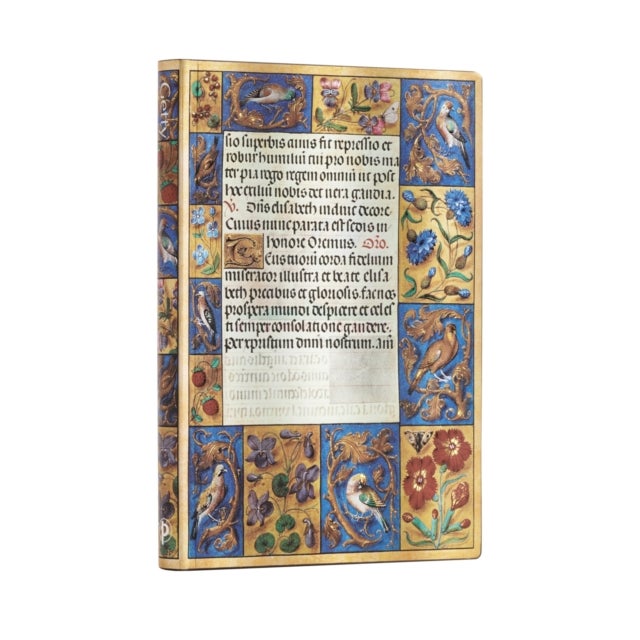 Getty
sio superbis cuius fit repressio et
robur humiliū tui pro nobis ma
ter pia rogo regem omniū ut post
hoc exiliū nobis det vera gaudia.
V. Dn̄s elisabeth induit decore
Cuius nunc parata est sedis in
honore Oremus. Oro.
Deus tuorū corda fidelium
miserator illustra et beate elisa
beth precibus et gloriosis. fac nos
prospera mundi despicere et celes
ti semper consolatione gaudere.
Per xpristum dn̄m nostrum. am̄